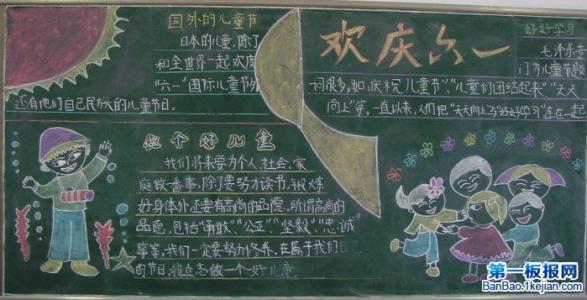 国外的儿童节
日本的儿童,除了
和全世界一起欢度
"六一"国际儿童节外
还有他们自己民族的儿童节日。
欢庆六一
好好学习
毛泽东
门为儿童节题
词很多,如"庆祝儿童节""儿童们团结起来""天天
向上"等。一直以来,人们把"天天向上"与"好好学习"连在一起
做个好儿童
我们将来要为个人、社会、家
庭做番事,除了要努力读书,锻炼
好身体外还要有高尚的品德,所谓高尚的
品德,包括"勇敢""公正""坚毅""忠诚"
等等,我们一定要努力修养。在属于我们
的节日,我立志做一个好儿童
第一板报网
BanBao.1kejian.com